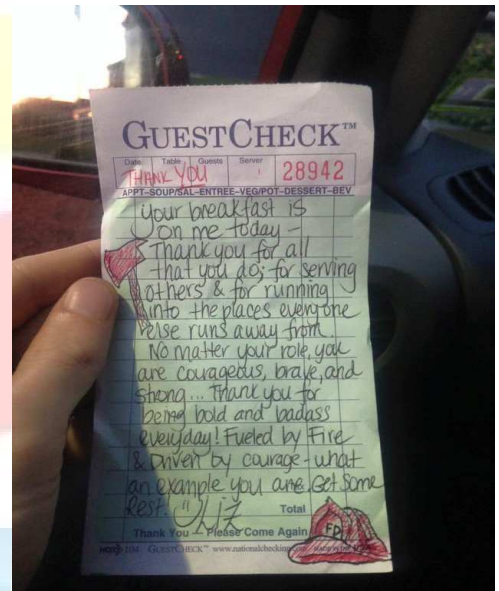 GUESTCHECK™
Date Table Guests Server
THANK YOU
28942
APPT-SOUP/SAL-ENTREE-VEG/POT-DESSERT-BEV
your breakfast is
on me today -
Thank you for all
that you do; for serving
others & for running
into the places everyone
else runs away from
No matter your role, you
are courageous, brave, and
strong... Thank you for
being bold and badass
everyday! Fueled by Fire
& Driven by courage - what
an example you are. Get some
Rest.
Liz
Total
FD
Thank You — Please Come Again
GUESTCHECK™ www.nationalchecking